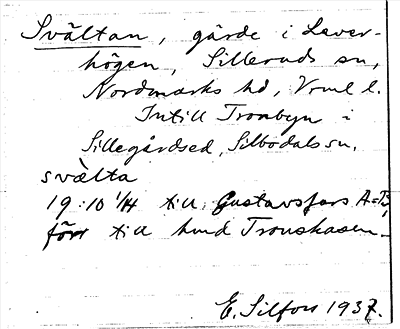 Svältan, gärde i Lever-
högen, Silleruds sn,
Nordmarks hd, Vrml l.
Intill Tronbyn i
Sillegårdsed, Silbodals sn.
svälta
19:10 1/4 till Gustavsfors
till hmd
E. Silfors 1937.